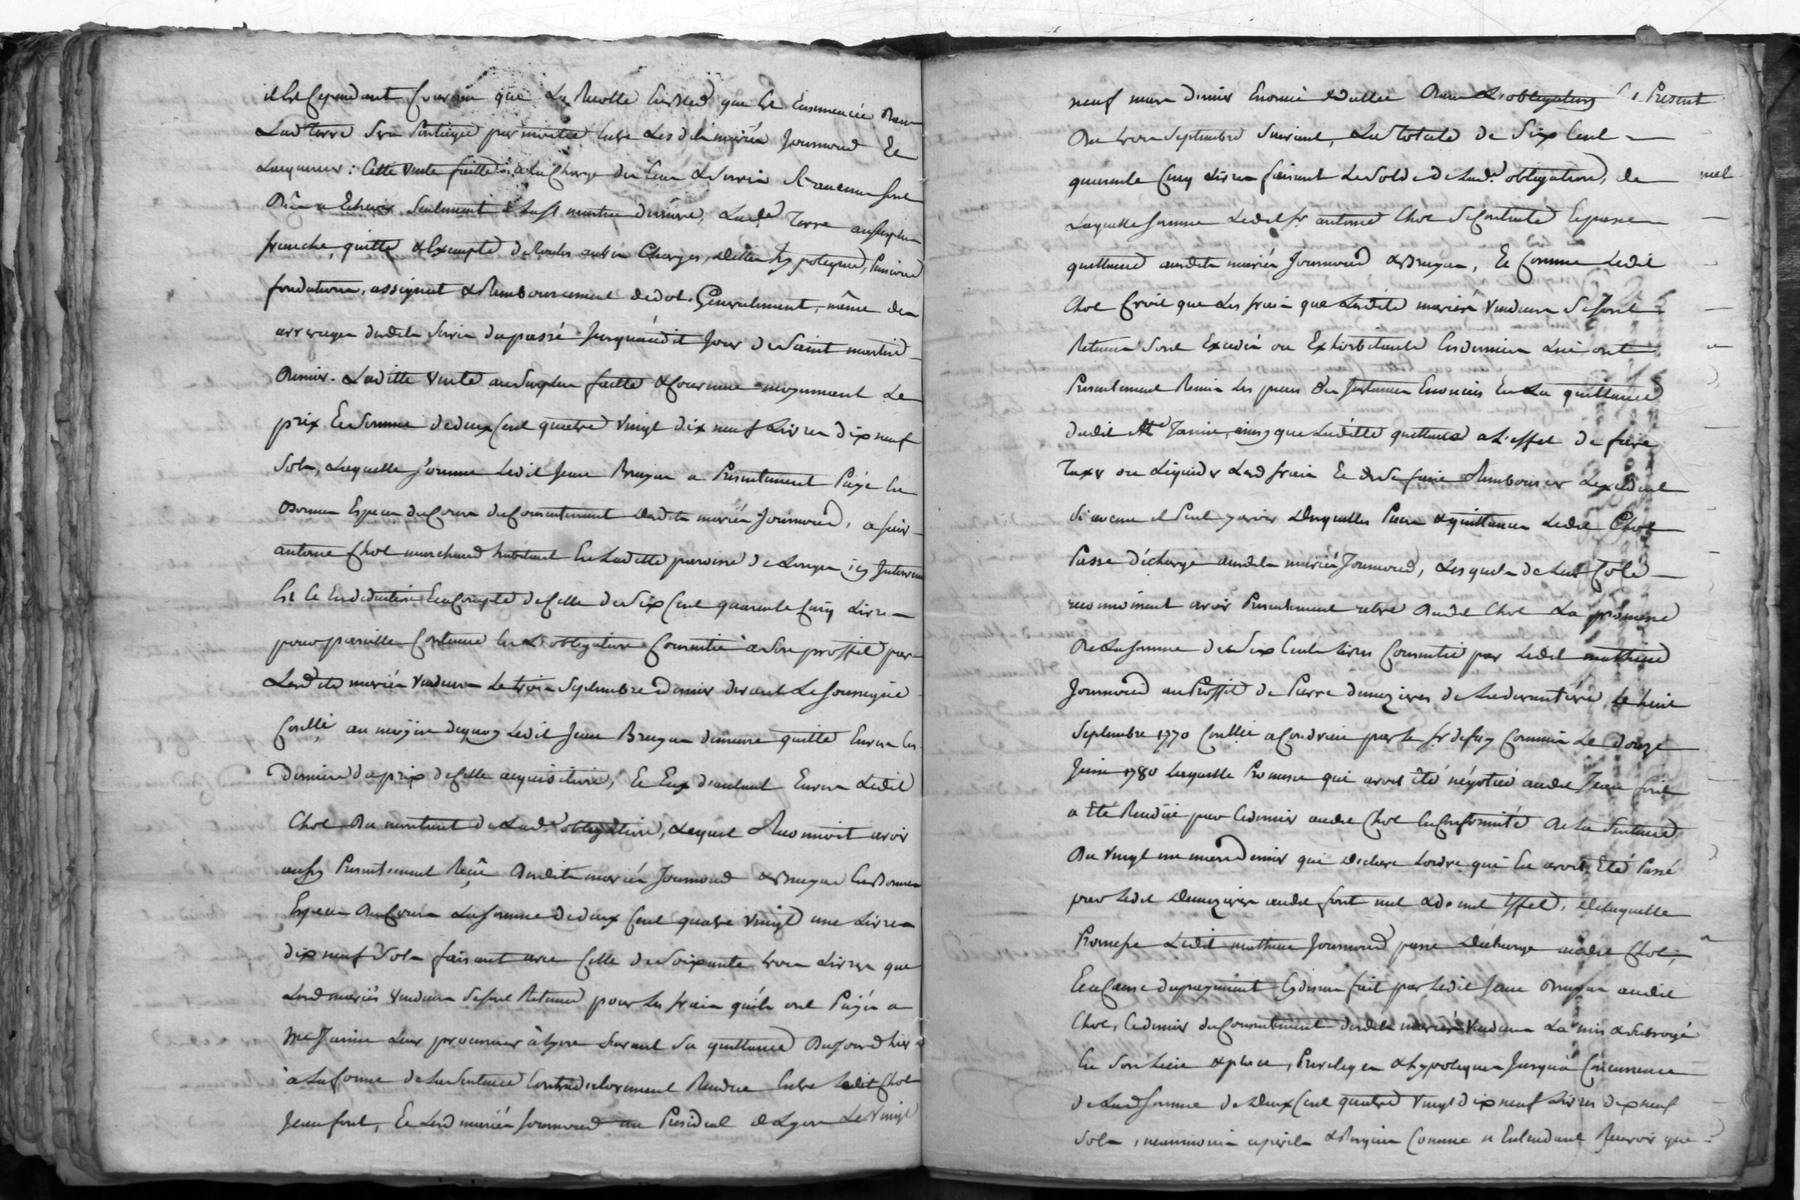 est cependant convenu que la Recolte qui est Ensemencée dans
Lad terre sera partagée par moitié entre lesdits mariés Journoud Et
Lacquereur: cette vente faitte à la Charge du Cens & servis
à Echeoir seulement à la st martin derniere, Lad.e Terre au surplus
franche, quitte & Exempte de toutes autres Charges, dettes hypoteques, Pensions
fondations, assignat & Remboursement de dot Generalement, même des
arrerages desdits servis du passé Jusqu'audit Jour de Saint martin
dernier. Laditte vente au surplus faitte & Convenue moyennant Le
prix Et somme de deux Cent quatre vingt dix neuf Livres dix neuf
sols, Laquelle somme Ledit Jean Bruyas a Presentement Payé En
Bonnes Especes du Cours du Consentement desdits mariés Journoud, a sieur
antoine Chol marchand habitant En Laditte paroisse de Longes icy Intervenu
Et ce En déduction & a Compte de Celle de Six Cent quarente Cinq Livres
pour pareille Contenue En L'obligation Consentie à son proffit par
Lesdits mariés vendeurs Le trois Septembre dernier devant Le soussigné
Conllé au moyen de quoy Ledit Jean Bruyas demeure quitte Envers les
derniers du prix de Cette acquisition, Et Eux d'autant Envers Ledit
Chol du montant de Lad.e obligation, Lequel Reconnoit avoir
aussy Presentement Reçu desdits mariés Journoud & Bruyas En Bonnes
Especes du Cours La somme de deux Cent quatre vingt une Livres
dix neuf Sols faisant avec Celle de Soixante trois Livres que
Lesd mariés vendeurs se sont Retenus pour les frais qu'ils ont Payés a
Me Janin Leur procureur à Lyon suivant sa quittance
à La forme de La Sentence Contradictoirement Rendue Entre Ledit Chol
Jean font, Et Lesd mariés Journoud au Presidial de Lyon Le Vingt
neuf mars dernier Enoncée & dattée dans L'obligation
du trois Septembre suivant, La totale de Six Cent
quarente Cinq Livres faisant Le Solde de Lad.e obligation, de
Laquelle somme Ledit sr antoine Chol se Contente Et passe
quittance auxdits mariés Journoud & Bruyas, Et Comme Ledit
Chol Croit que Les frais que Lesdits mariés vendeurs se sont
Retenus sont Excessifs ou Exhorbitants Ces derniers Lui ont
Presentement Remis Les pieces Enoncées En La quittance
dudit Me Janin, ainsy que Laditte quittance a L'effet de faire
Taxer ou Liquider Lesd frais Et de se faire Rembourser L'excedant
Si aucun il Peut y avoir desquelles Pieces & quittances Ledit Chol
Passe décharge auxdits mariés Journoud, Lesquels de Leur Coté
reconnoissent avoir Presentement retiré dudit Chol La promesse
de La somme de Six Cents Livres Consentie par Ledit mathieu
Journoud au Proffit de Pierre dumezieres Le huit
Septembre 1770 Conllée a Condrieu par le sr Commis Le douze
Juin 1780 Laquelle Promesse qui avoit été négotiée audit Jean font
a été Rendüe par Ce dernier audit Chol En Conformité de La Sentence
du vingt neuf mars dernier qui declare Lordre qui En avoit Eté Passé
par Ledit dumezieres audit font nul & de nul Effet, de Laquelle
Promesse Ledit mathieu Journoud passe decharge audit Chol,
Et a Cause du payement Cydessus fait par Ledit Jean Bruyas audit
Chol, Ce dernier du Consentement desdits mariés vendeurs La mis & subrogé
En son Lieu & place, Privileges & hypoteques Jusqu'à Concurrence
de Lad somme de deux Cent quatre vingt dix neuf Livres dix neuf
sols, neanmoins a perils & Risques Comme n'Entendant Recevoir que